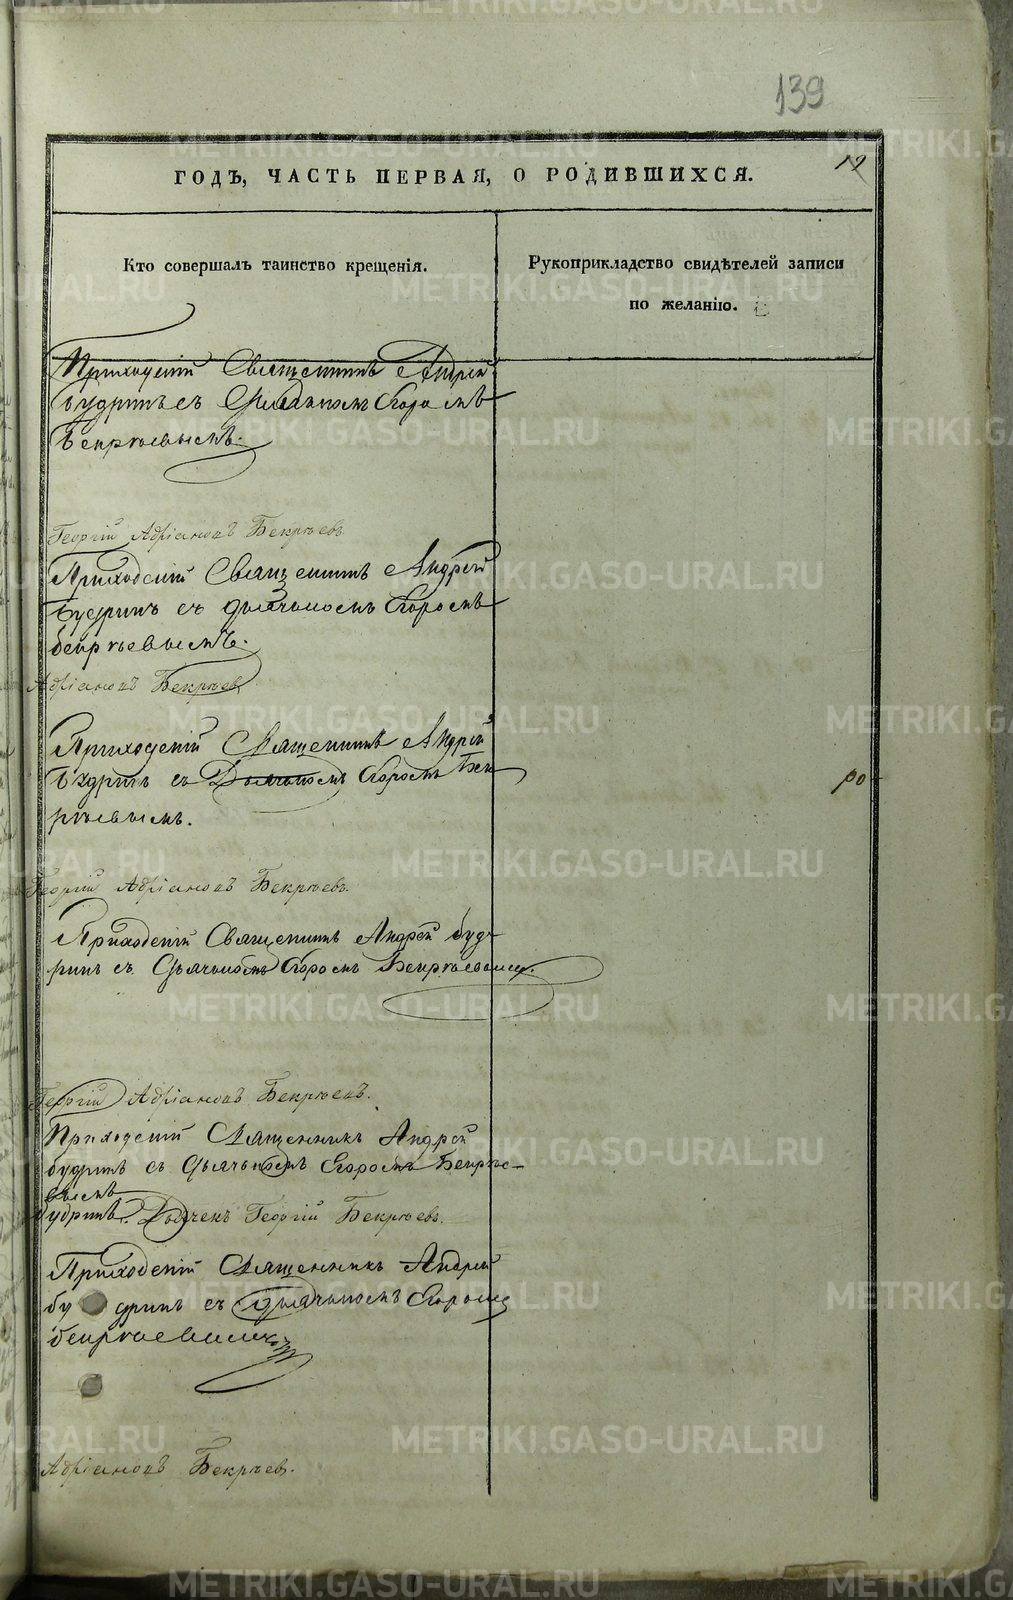 139
12
ГОДЪ, ЧАСТЬ ПЕРВАЯ, О РОДИВШИХСЯ.
Кто совершалъ таинство крещенія.
Рукоприкладство свидѣтелей записи
по желанію.
Приходскій Священникъ Андрей
Будринъ съ Дьячкомъ Егоромъ
Бекрѣевымъ.
Георгій Адріановъ Бекрѣевъ
Приходскій Священникъ Андрей
Будринъ съ дьячкомъ Егоромъ
бекрѣевымъ.
Адріановъ Бекрѣев
Приходскій Священникъ Андрей
Будринъ съ Дьячкомъ Егоромъ Бек
рѣевымъ.
Георгій Адріановъ Бекрѣевъ.
Приходскій Священникъ Андрей буд
ринъ съ Дьячкомъ Егоромъ Бекрѣевымъ.
Георгій Адріановъ Бекрѣевъ.
Приходскій Священникъ Андрей
будринъ съ Дьячкомъ Егоромъ Бекрѣ-
вымъ
Будринъ. Дьячекъ Георгій Бекрѣевъ.
Приходскій Священникъ Андрей
бу дринъ съ Дьячкомъ Егоромъ
бекрѣевымъ
Адріановъ Бекрѣев.
METRIKI.GASO-URAL.RU